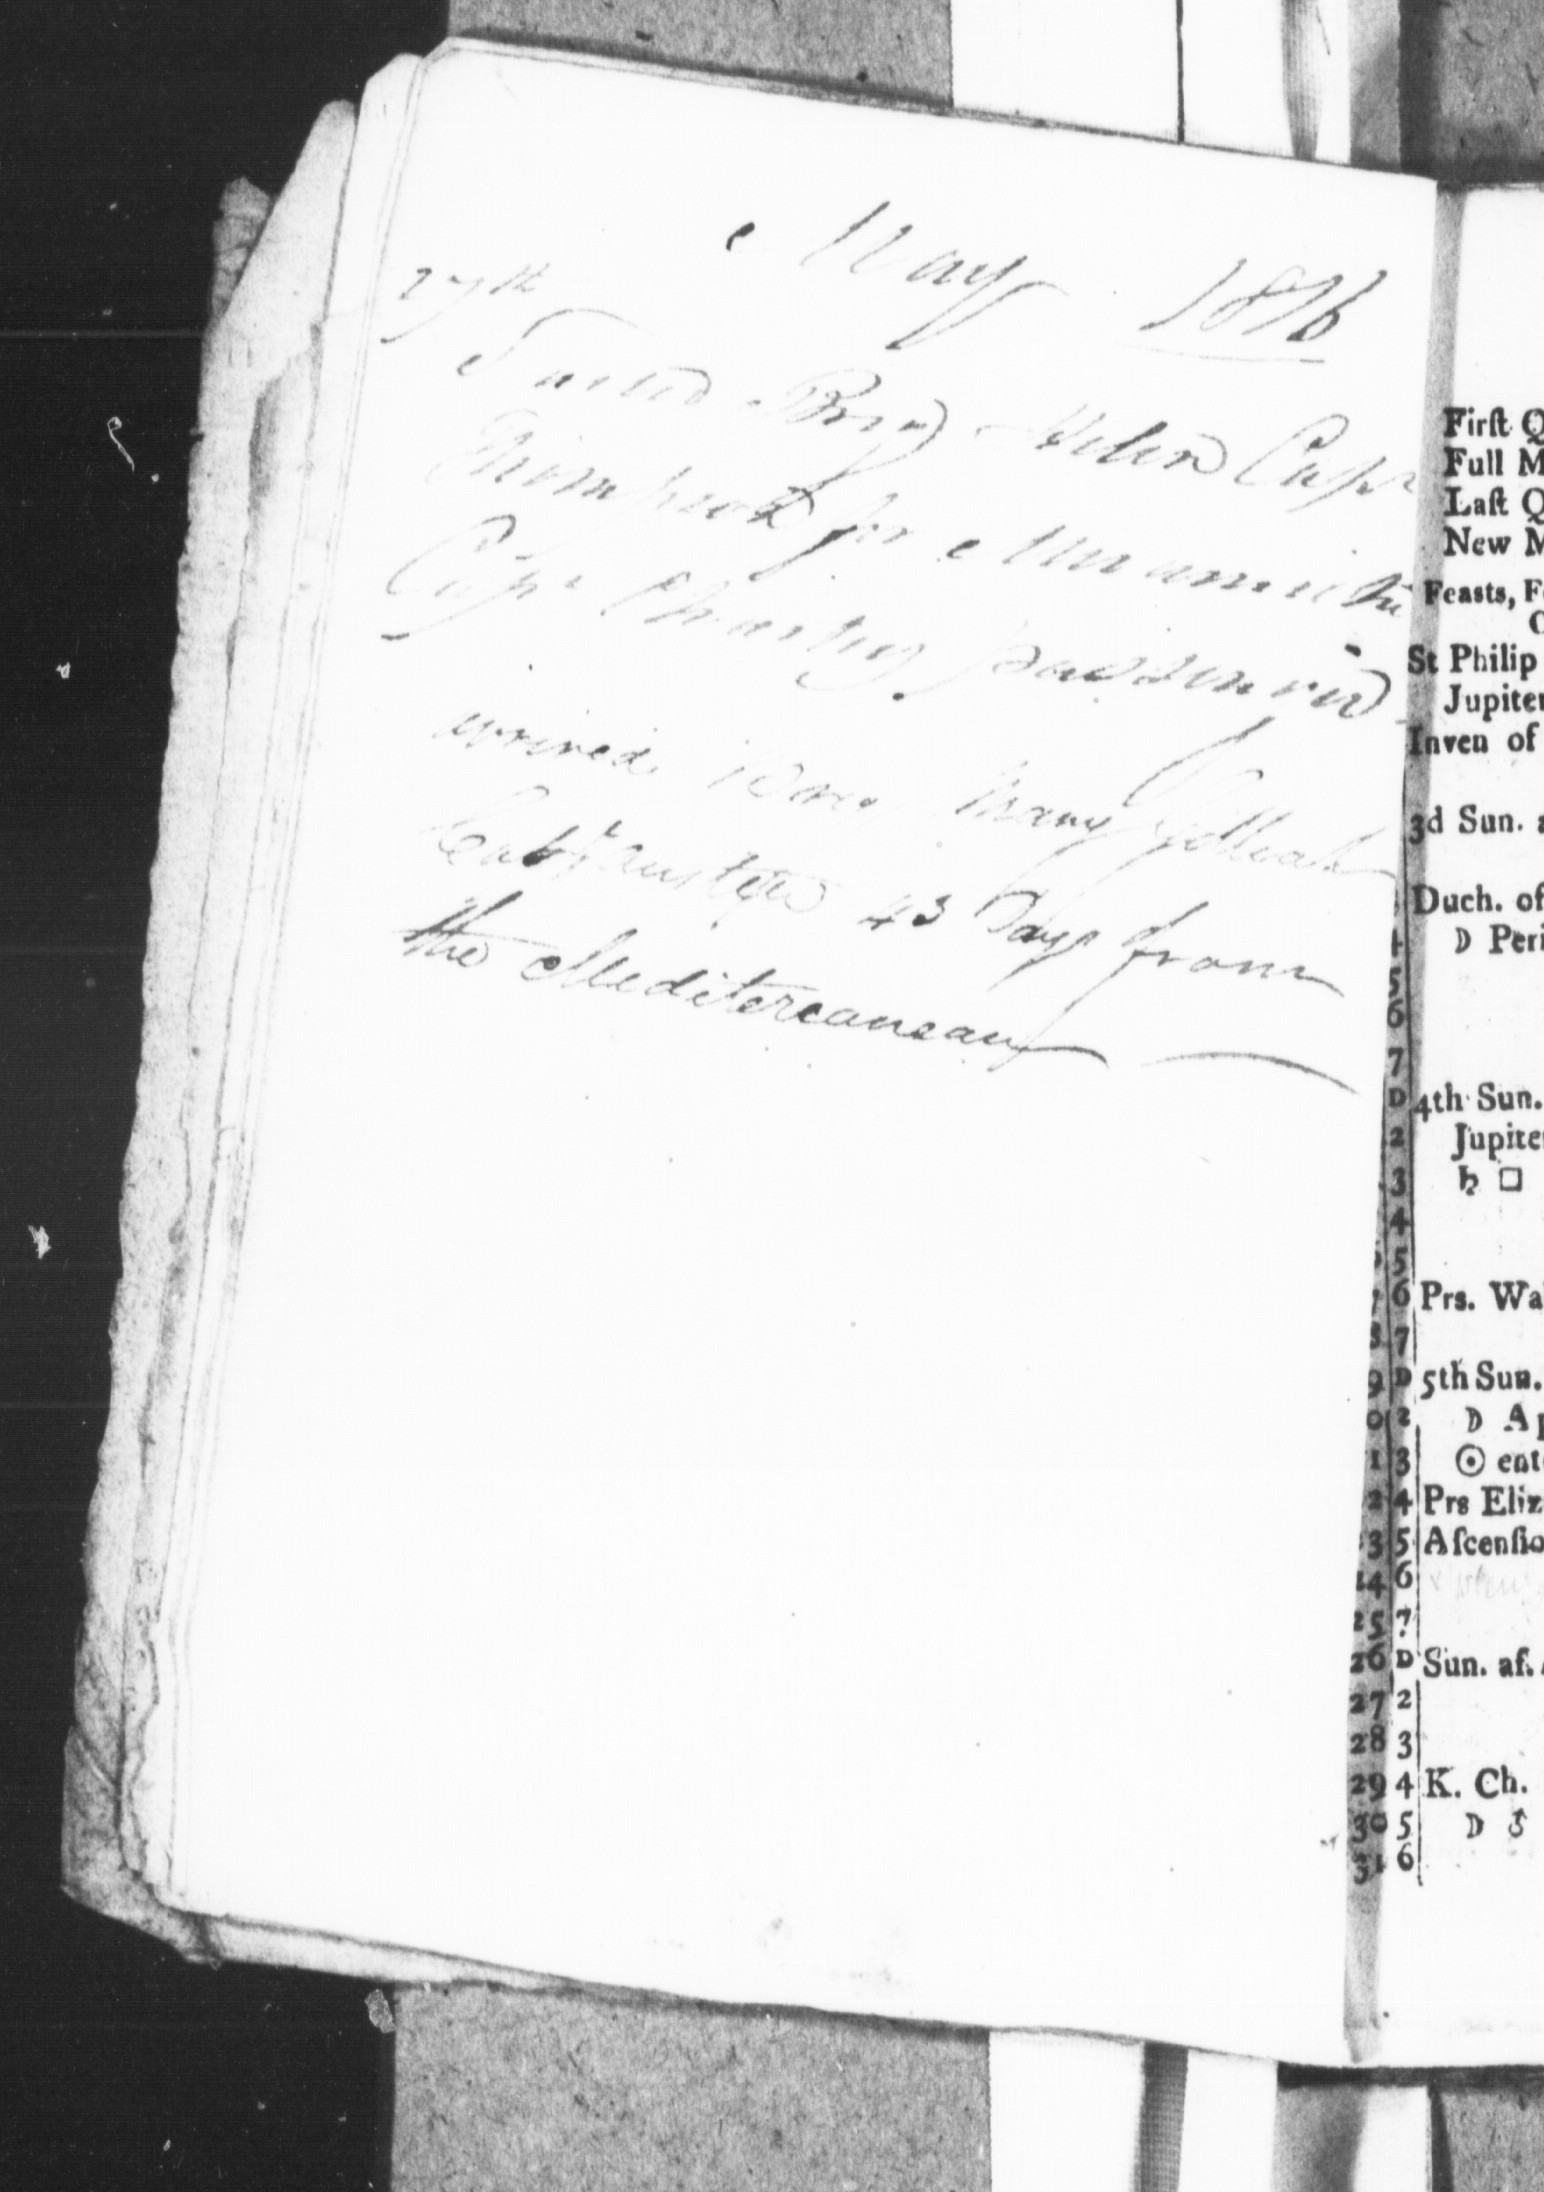 May 1816
27th
Sailed Brig Helen Capt
Thompson for Miramichi
Capt passenger
arrived Brig Mary
Capt 43 Days from
the Mediterranean
First Q
Full M
Last Q
New M
Feasts, F
St Philip
Jupiter
Inven of
3d Sun. a
Duch. of
4 D Peri
5
6
7
D 4th Sun.
2 Jupiter
3 ♄ □
4
5
6 Prs. Wa
8 7
9 D 5th Sun.
0 2 D Ap
1 3 ☉ ent
2 4 Prs Eliz
3 5 Aſcenſio
24 6
25 7
26 D Sun. af.
27 2
28 3
29 4 K. Ch.
30 5 D ♂
31 6